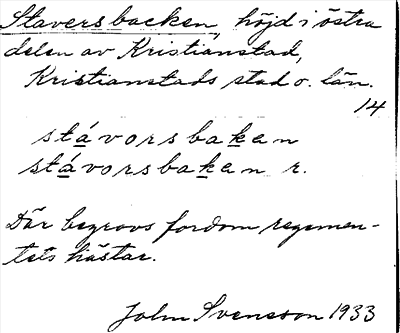 Staversbacken, höjd i östra
delen av Kristianstad,
Kristianstads stad o. län.
14
stávorsbaken
stávorsbaken r.
Där begrovs fordom regemen-
tets hästar.
John Svensson 1933